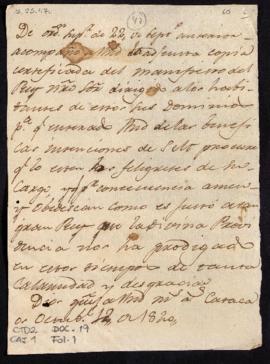 De orn. supr. de 22, de Sept. anterior
acompaño a Vmd. la adjunta copia
certificada del manifiesto del
Rey Ntro. Sor. dirigido a los habi-
tantes de estos sus Dominios
pa. q. enterado Vmd. de las benefi-
cas intenciones de S.M. procure
q. lo esten los feligreses de su
cargo y q. en consecuencia amen
y obedescan como es justo a tan
gran Rey que la Divina Provi-
dencia nos ha prodigado
en estos tiempos de tanta
Calamidad y desgracias.
Dios gue. a Vmd. ms. as. Caracas
Octubre 12 de 1820.
CTD2 DOC. 19
CAJ 1 FOL. 1